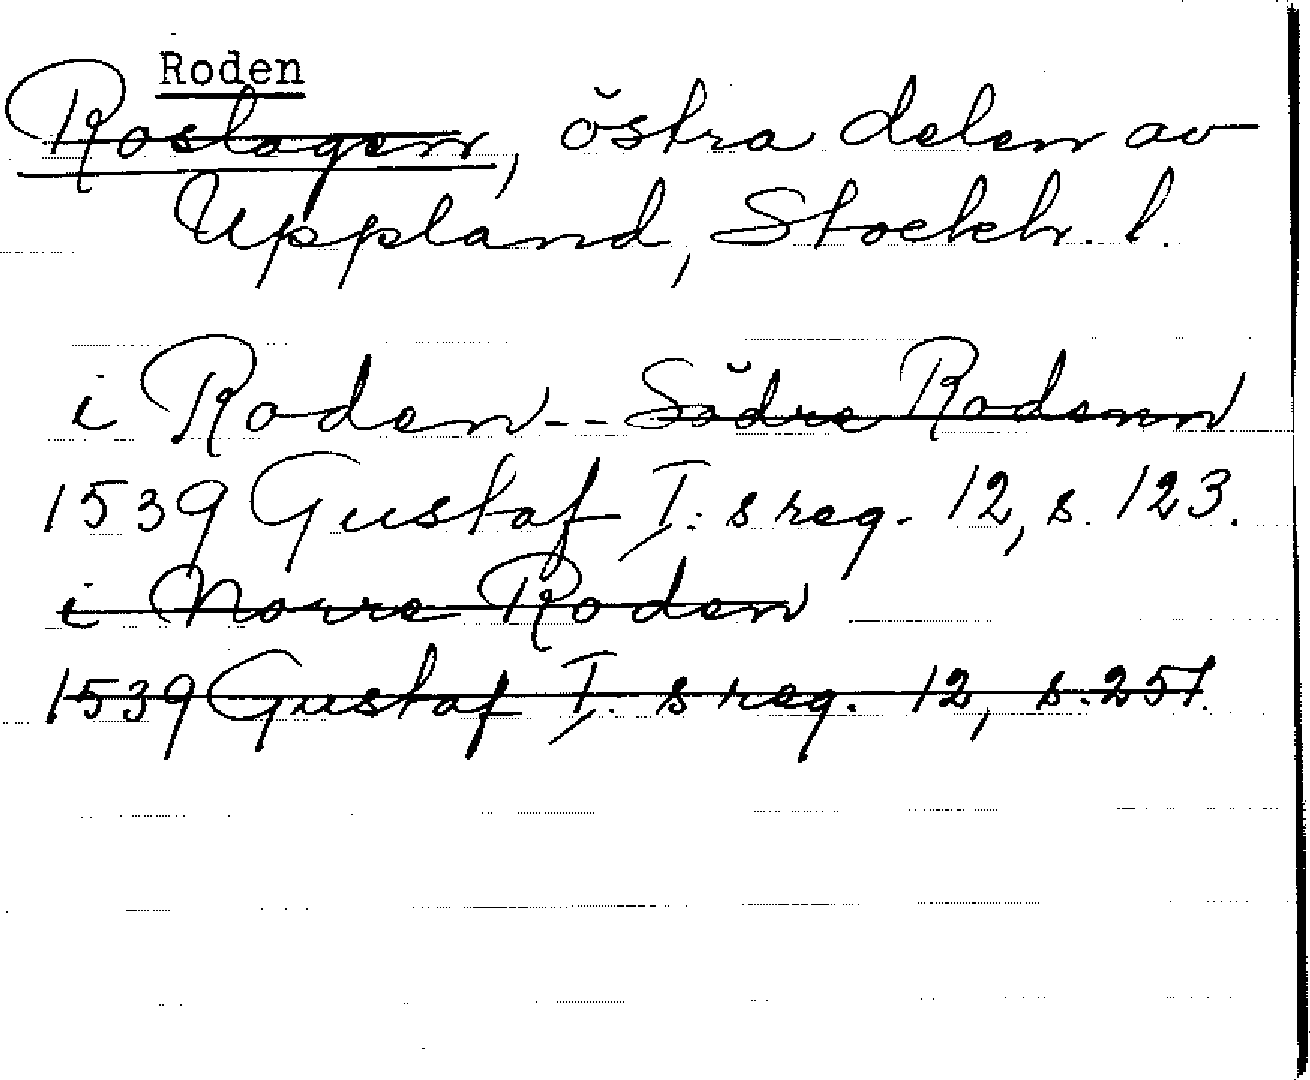 Roden
Roslagen, östra delen av
Uppland, Stockh. l.
i Roden -- Södre Rodenn
1539 Gustaf I:s reg. 12, s. 123.
i Norre Roden
1539 Gustaf I:s reg. 12, s. 257.